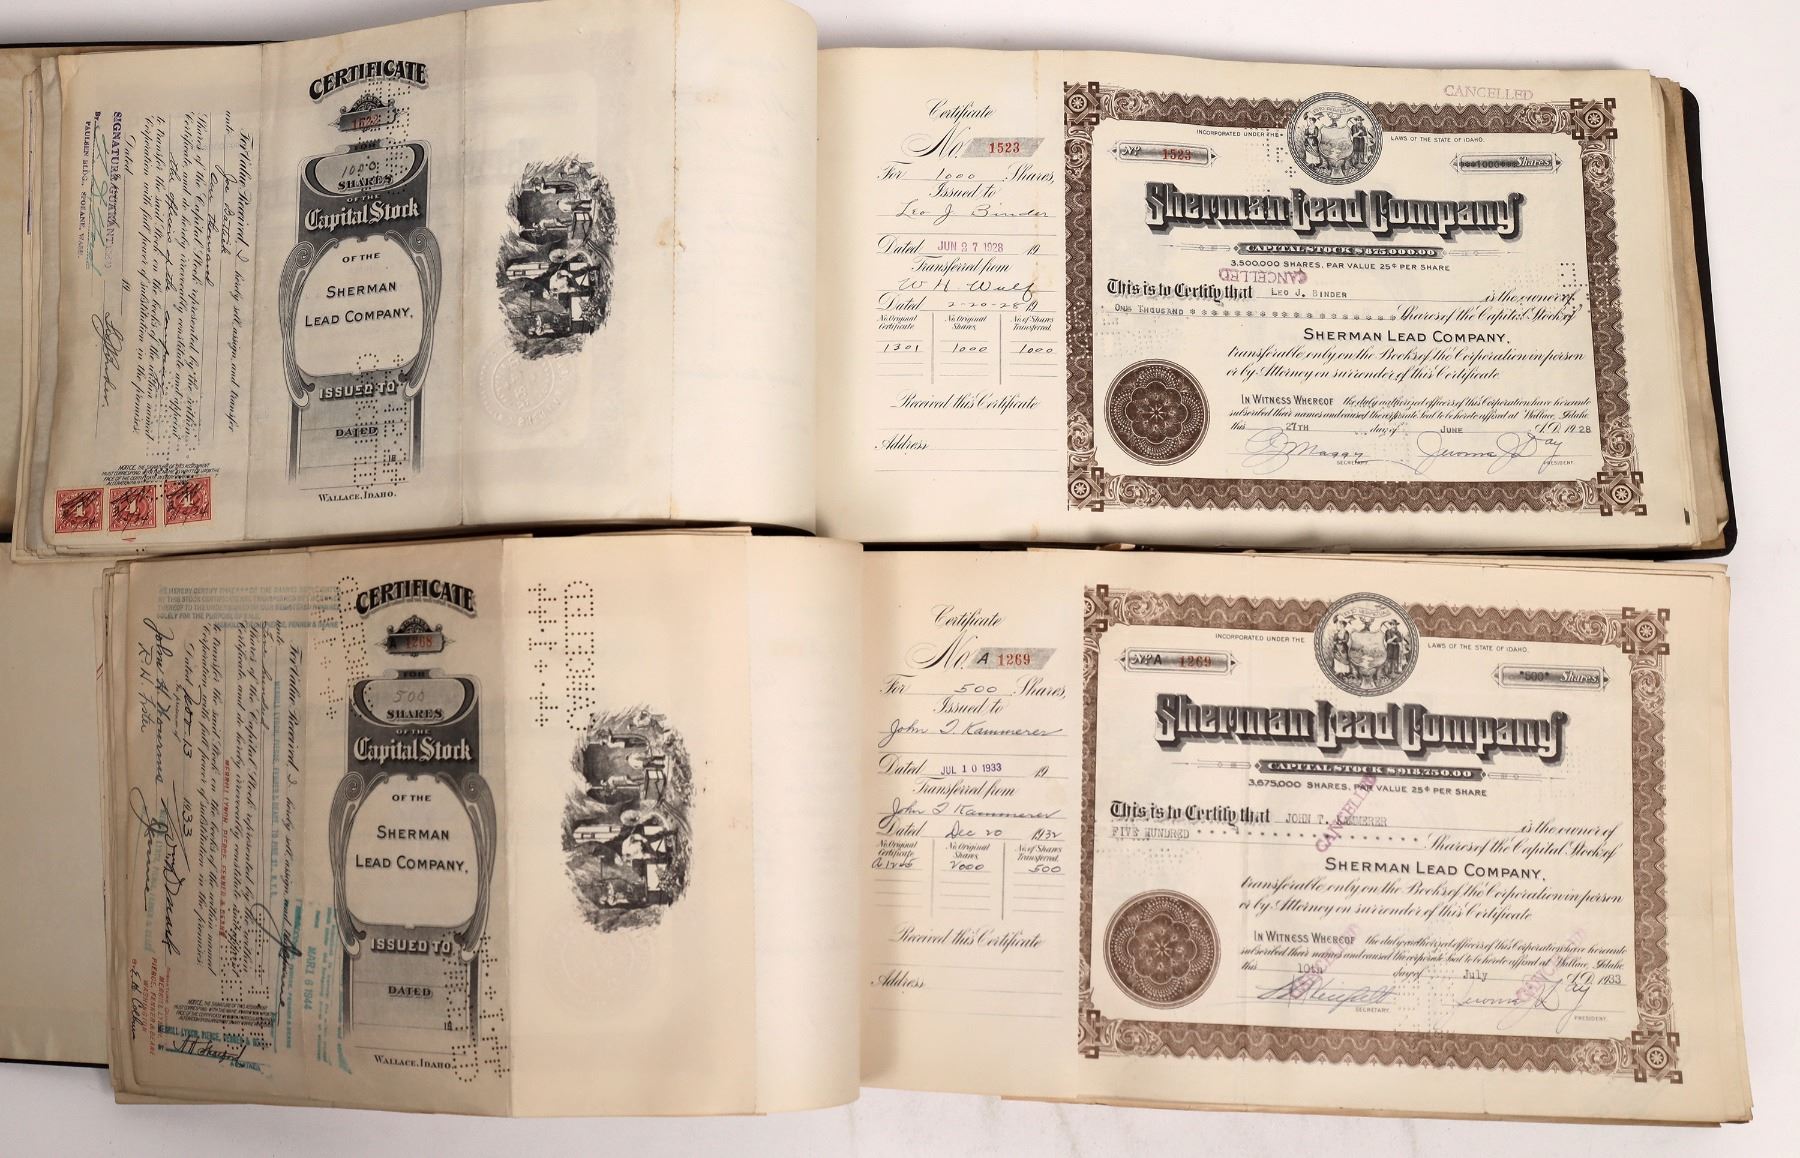 CERTIFICATE
1522
FOR
1000
SHARES
OF THE
Capital Stock
OF THE
SHERMAN
LEAD COMPANY,
ISSUED TO
DATED
WALLACE, IDAHO.
For Value Received, I hereby sell, assign and transfer
unto
Shares of the Capital Stock represented by the within
Certificate and do hereby irrevocably constitute and appoint
to transfer the said Stock on the books of the within named
Corporation with full power of substitution in the premises.
Dated 19
SIGNATURE GUARANTEED
By
PAULSEN BLDG., SPOKANE, WASH.
Certificate
No. 1523
For 1000 Shares,
Issued to
Leo J. Binder
Dated JUN 27 1928 19
Transferred from
W H. Wulf
Dated 2-20-28 19
No. Original Certificate No. Original Shares No. of Shares Transferred
1301 1000 1000
Received this Certificate
Address
CANCELLED
INCORPORATED UNDER THE LAWS OF THE STATE OF IDAHO.
No 1523
***1000*** Shares.
Sherman Lead Company
CAPITAL STOCK $875,000.00
3,500,000 SHARES, PAR VALUE 25¢ PER SHARE
CANCELLED
This is to Certify that LEO J. BINDER is the owner of
ONE THOUSAND Shares of the Capital Stock of
SHERMAN LEAD COMPANY,
transferable only on the Books of the Corporation in person
or by Attorney on surrender of this Certificate.
IN WITNESS WHEREOF the duly authorized officers of this Corporation have hereunto
subscribed their names and caused the corporate Seal to be hereto affixed at Wallace, Idaho
this 27TH day of JUNE A.D. 1928
Jerome J Day
SECRETARY. PRESIDENT.
CERTIFICATE
A 1268
FOR
500
SHARES
OF THE
Capital Stock
OF THE
SHERMAN
LEAD COMPANY,
ISSUED TO
DATED
WALLACE, IDAHO.
CANCELLED
MAR 16 1944
For Value Received, I hereby sell, assign and
Dated 13 1933
Certificate
No. A 1269
For 500 Shares,
Issued to
John T. Kammerer
Dated JUL 10 1933 19
Transferred from
John T Kammerer
Dated Dec 20 1932
No. Original Certificate No. Original Shares No. of Shares Transferred
A 1245 2000 500
Received this Certificate
Address
INCORPORATED UNDER THE LAWS OF THE STATE OF IDAHO.
No A 1269
*500* Shares.
Sherman Lead Company
CAPITAL STOCK $918,750.00
3,675,000 SHARES, PAR VALUE 25¢ PER SHARE
CANCELLED
This is to Certify that JOHN T. KAMMERER is the owner of
FIVE HUNDRED Shares of the Capital Stock of
SHERMAN LEAD COMPANY,
transferable only on the Books of the Corporation in person
or by Attorney on surrender of this Certificate
IN WITNESS WHEREOF the duly authorized officers of this Corporation have hereunto
subscribed their names and caused the corporate Seal to be hereto affixed at Wallace, Idaho
this 10th day of July A.D. 1933
CANCELLED
CANCELLED
Jerome J Day
SECRETARY. PRESIDENT.